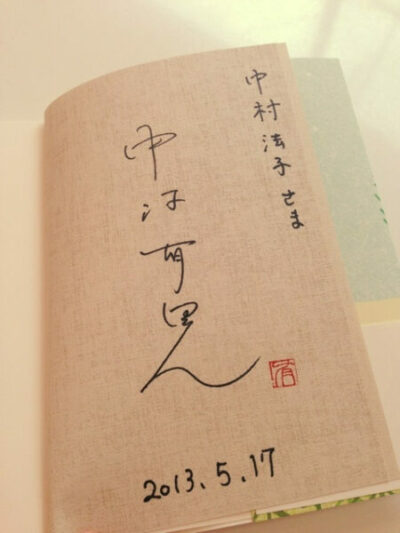 中村法子さま
中江有里
有
2013.5.17